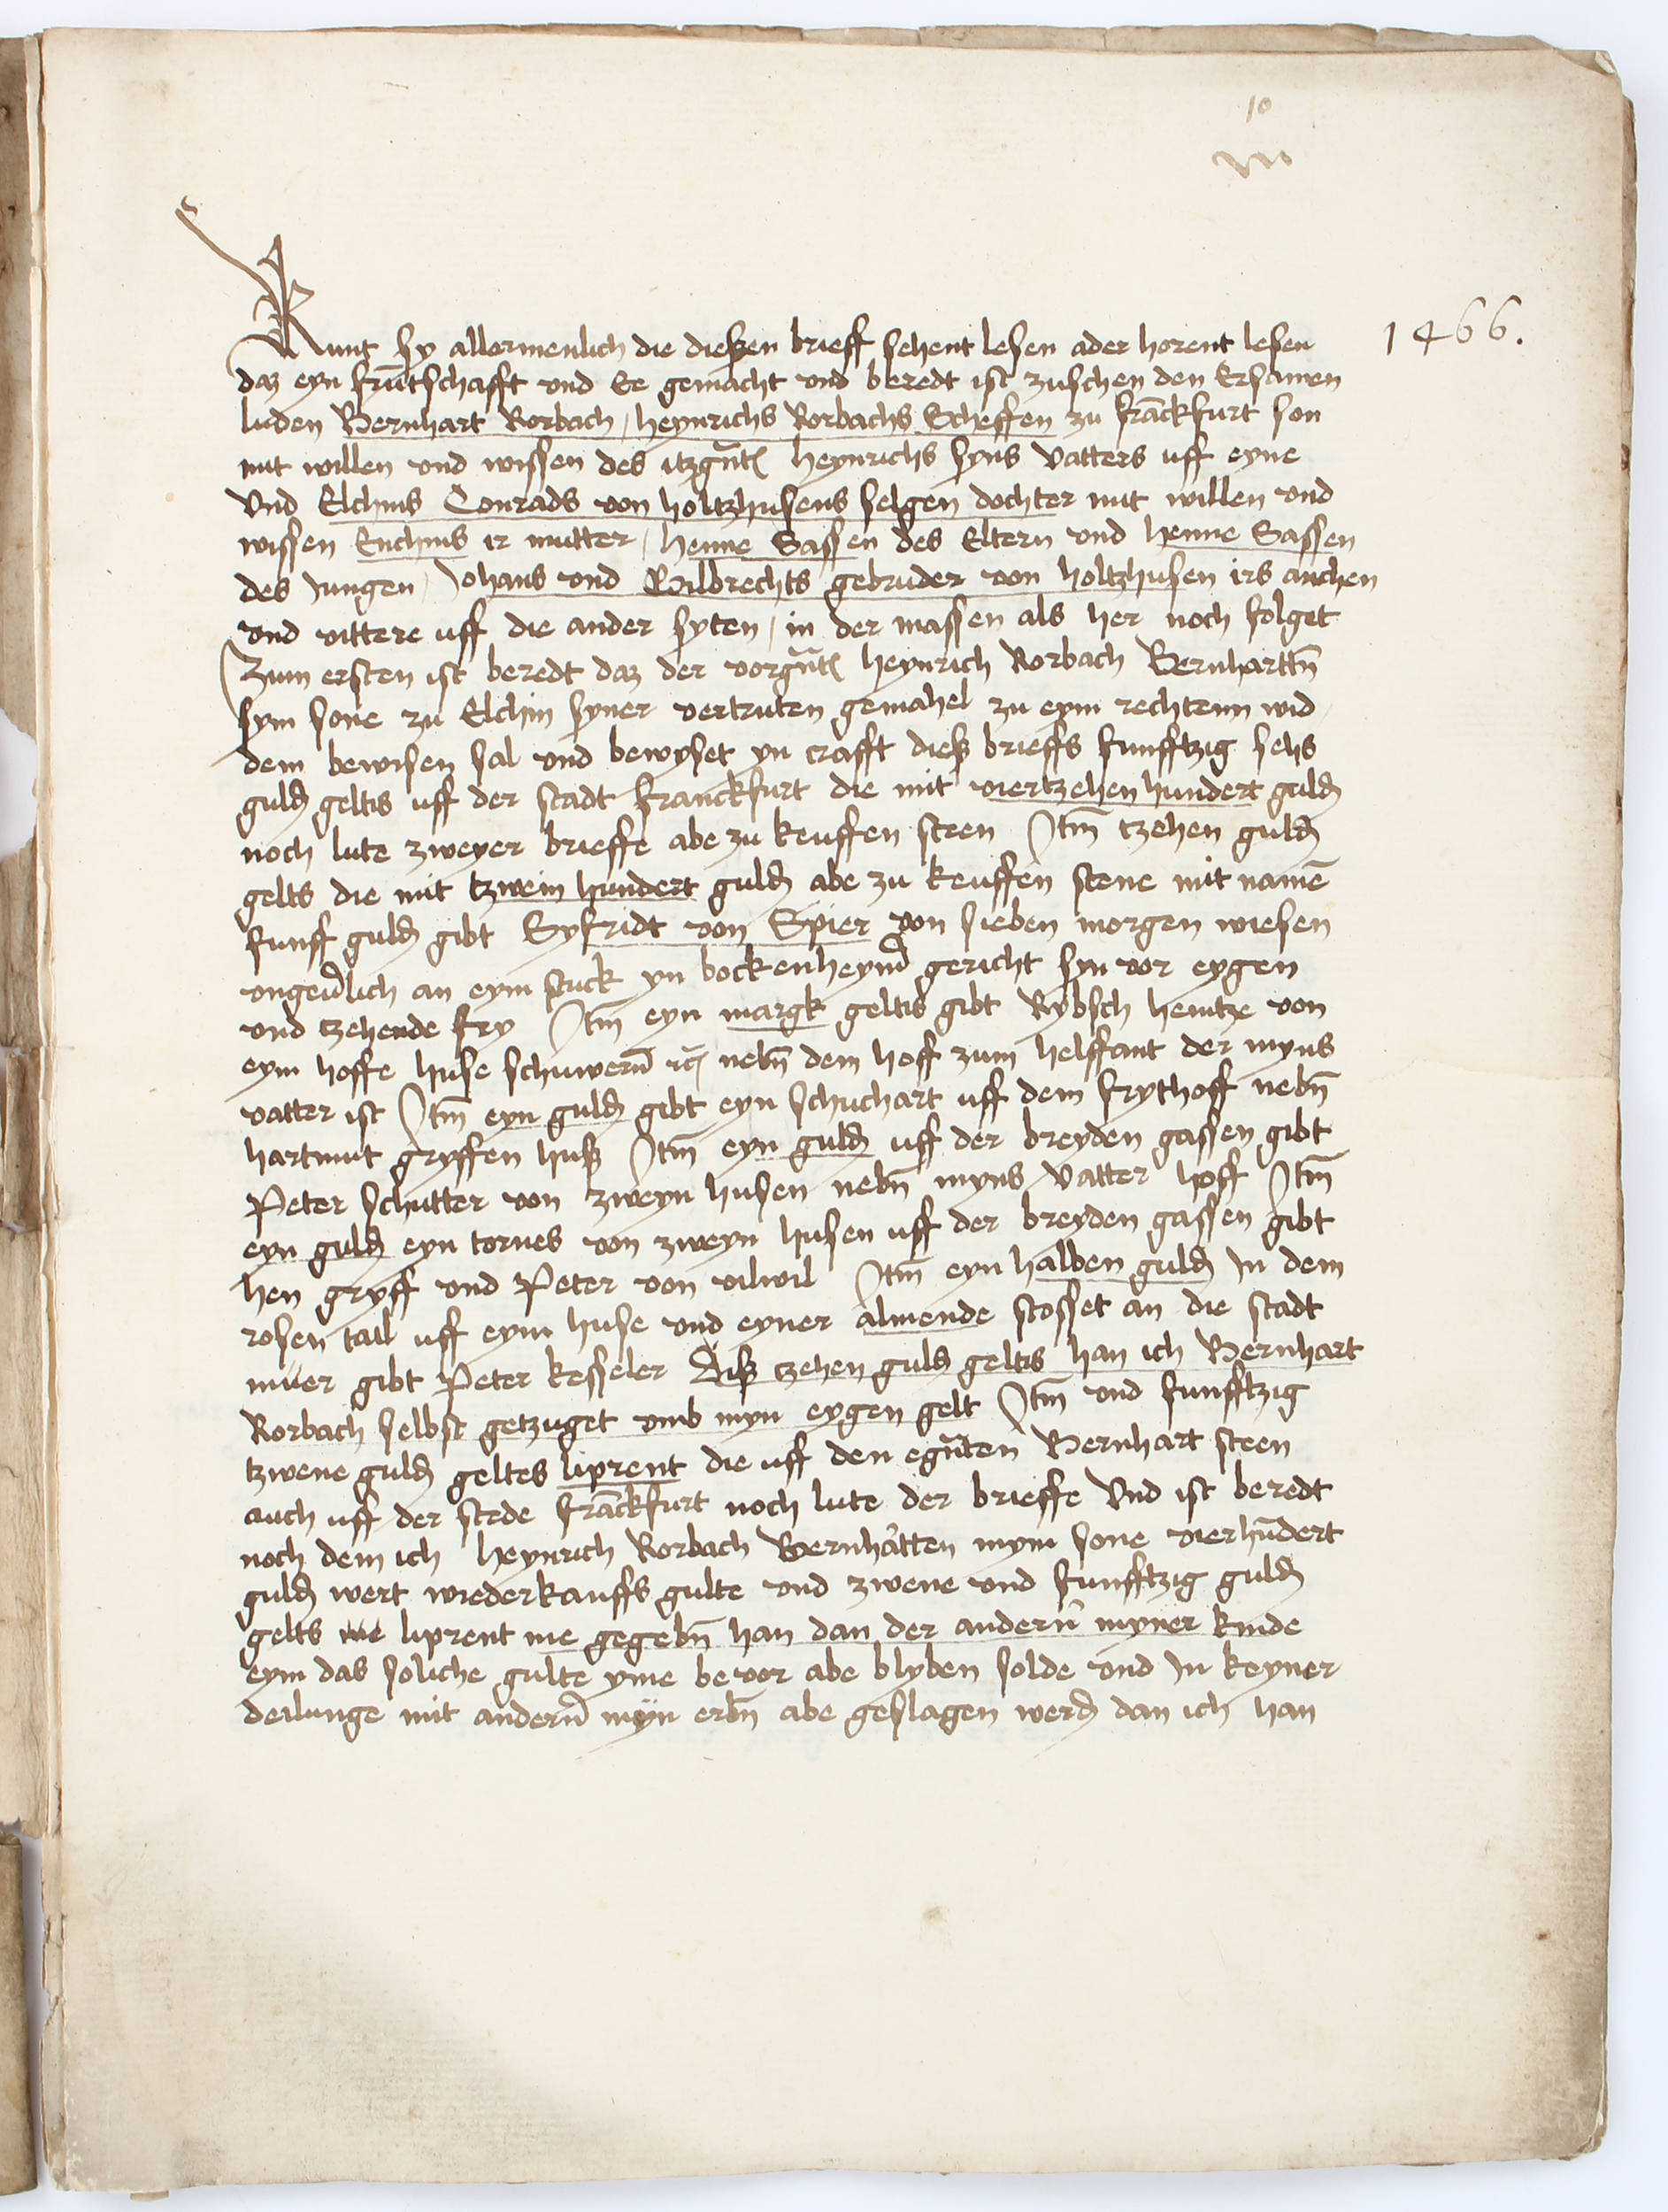 10
1466.
Kunt sy allermenlich die dießen brieff sehent lesen ader horent lesen
daz eyn frūtschafft vnd Ee gemacht vnd beredt ist zuschen den Ersamen
luden Bernhart Rorbach, heynrichs Rorbachs Scheffen zu frāckfurt son
mit willen vnd wissen des itzgn̄tē heynrichs syns vatters uff eyne
Vnd Elchins Conrads von holtzhusens selgen dochter mit willen vnd
wissen Enchins ir mutter, henne Sassen des Eltern vnd henne Sassen
des Jungen, Johans vnd Gilbrechts gebruder von holtzhusen irs anchen
vnd vittere uff die ander syten, in der massen als her noch folget
Zum ersten ist beredt daz der vorgn̄tē heynrich Rorbach Bernharttn̄
sym sone zu Elchin syner vertruten gemahel zu eym rechtenn wid
dem bewisen sal vnd bewyset yn crafft dieß brieffs funfftzig sehs
guld geltis uff der stadt franckfurt die mit viertzehen hundert guld
noch lute zweyer brieffe abe zu keuffen steen Itm̄ tzehen guld
gelts die mit tzwein hundert guld abe zu keuffen stene mit namē
funff guld gibt Syfridt von Spier von sieben morgen wiesen
vngeu̇lich an eym stuck yn bockenheym̄ gericht syn vor eygen
vnd tzehende fry Itm̄ eyn margk geltis gibt Rybsch hentze von
eym hoffe huse schuwern̄ rc̄ nebn̄ dem hoff zum helffant der myns
vatter ist Itm̄ eyn guld gibt eyn schuchart uff dem frythoff nebn̄
hartmut gryffen huß Itm̄ eyn guld uff der breyden gassen gibt
Peter schutter von zweyn husen nebn̄ myns vatter hoff Itm̄
eyn guld eyn tornes von zweyn husen uff der breyden gassen gibt
hen gryff vnd Peter von vilwil Itm̄ eyn halben guld In dem
rosen tail uff eym huse vnd eyner almende stosset an die stadt
muer gibt Peter kesseler Diß tzehen guld geltis han ich Bernhart
Rorbach selbst getzuget vmb myn eygen gelt Itm̄ vnd funfftzig
tzwene guld geltes liprent die uff den egn̄ten Bernhart steen
auch uff der stede frāckfurt noch lute der brieffe Vnd ist beredt
noch dem ich heynrich Rorbach Bernhātten mym sone vierhūdert
guld wert wiederkauffs gulte vnd zwene vnd funfftzig guld
gelts liprent me gegebn̄ han dan der andern̄ myner kinde
eym das soliche gulte yme bevor abe blyben solde vnd In keyner
deilunge mit andern̄ myn erbn̄ abe geslagen werd dan ich han